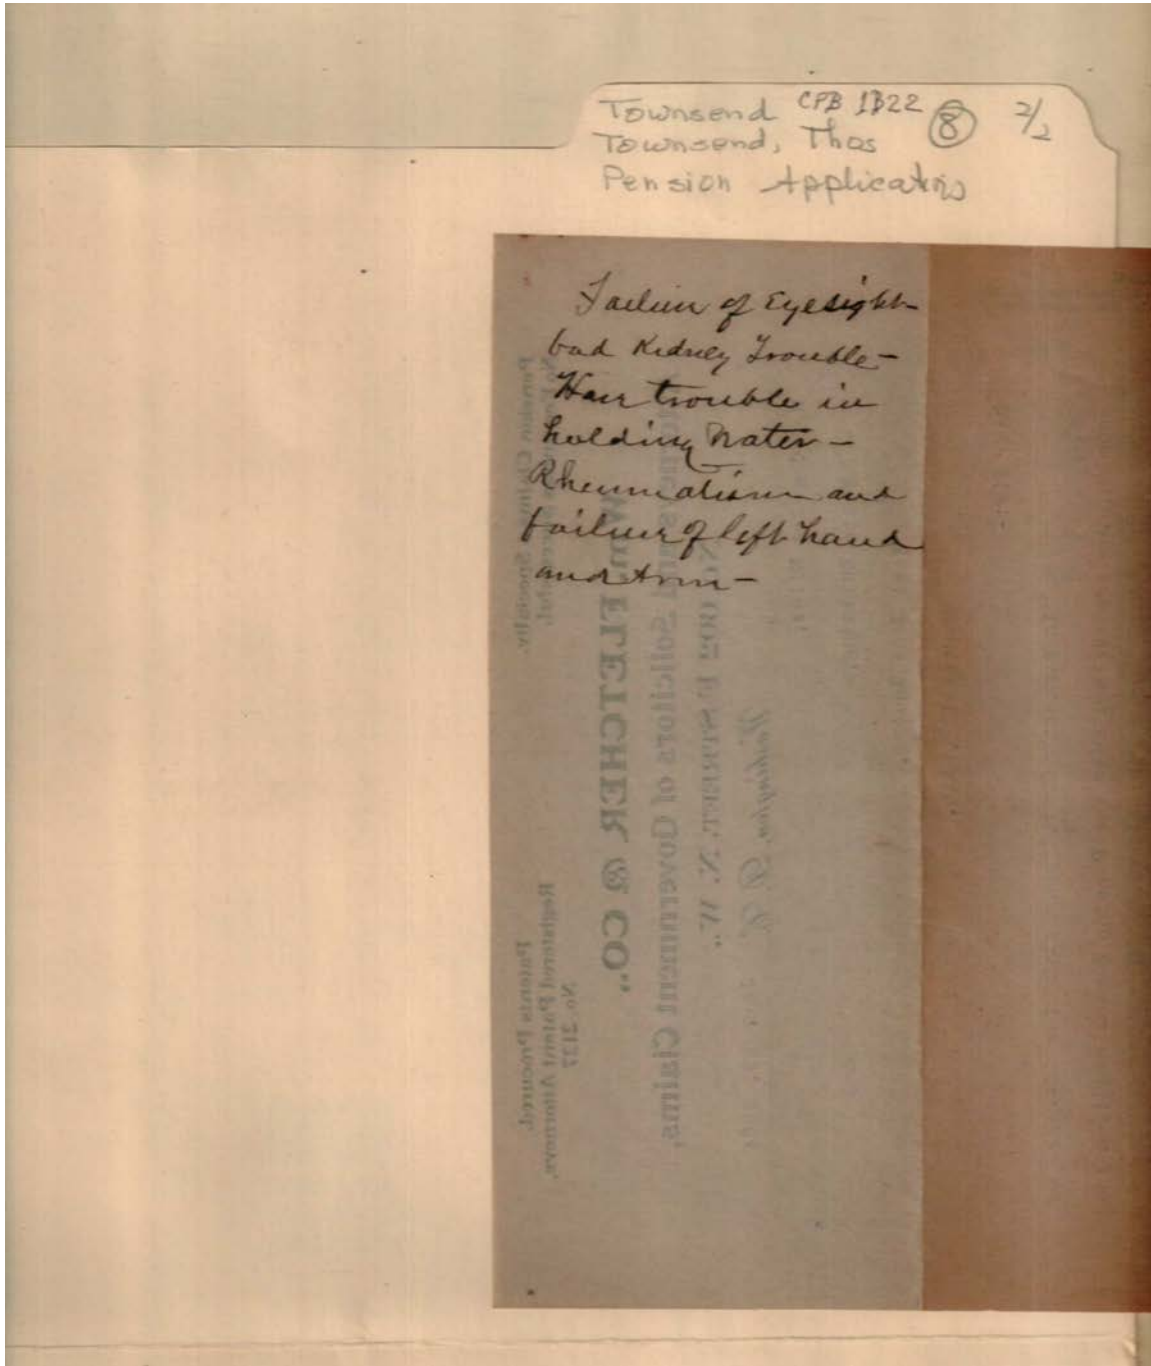 Townsend CPB 1B22 8 2/2
Townsend, Thos
Pension Applications
Failure of Eyesight -
bad Kidney Trouble -
Have trouble in
holding Water -
Rheumatism and
failure of left hand
and Arm -
FLETCHER & CO.,
Solicitors of Government Claims,
STREET N. W.,
Washington
No. 2137
Registered Patent Attorneys,
Patents Procured,